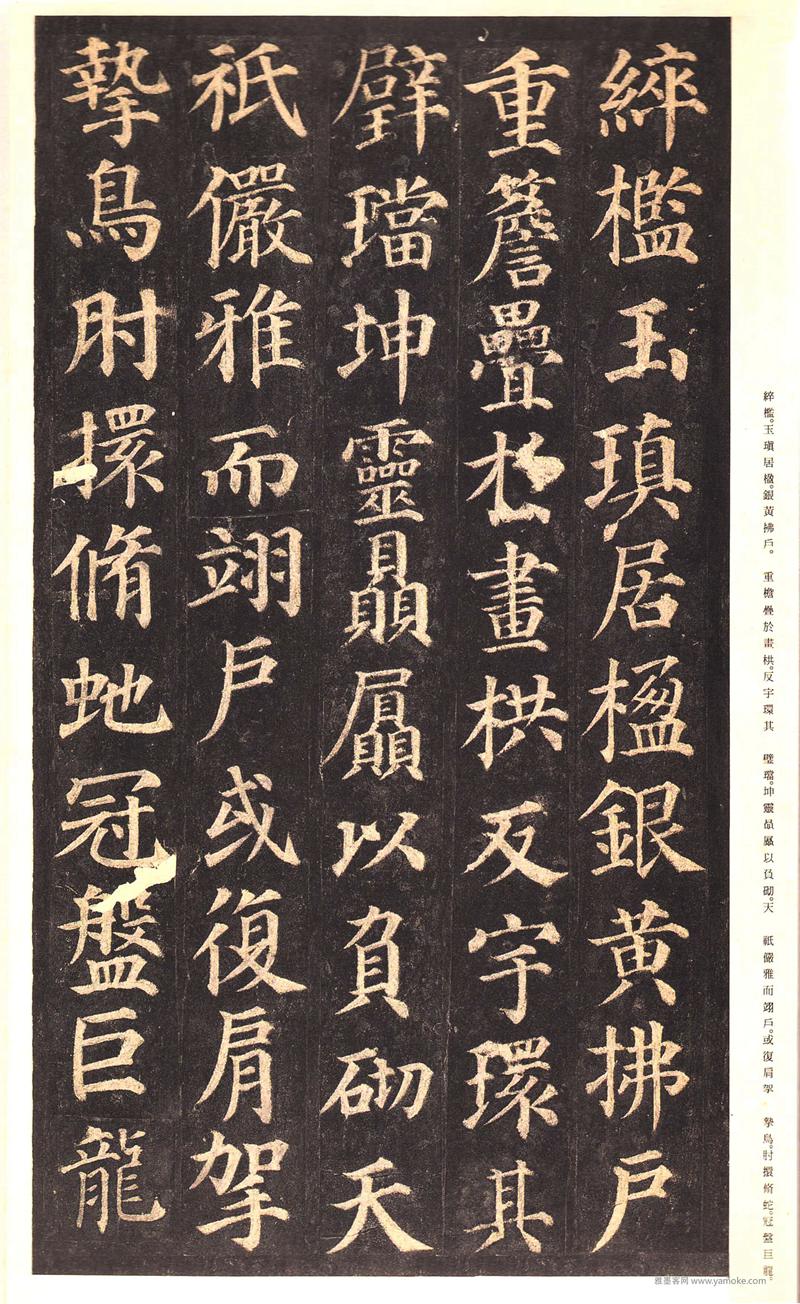 綷檻玉瑱居楹銀黃拂戶
重簷疊於畫栱反宇環其
璧璫坤靈贔屭以負砌天
祇儼雅而翊戶或復肩挐
摯鳥肘擐脩虵冠盤巨龍
綷檻。玉瑱居楹。銀黃拂戶。 重檐疊於畫栱。反宇環其 璧璫。坤靈贔屭以負砌。天 祇儼雅而翊戶。或復肩挐 摯鳥。肘擐脩蛇。冠盤巨龍。
雅墨客网 www.yamoke.com